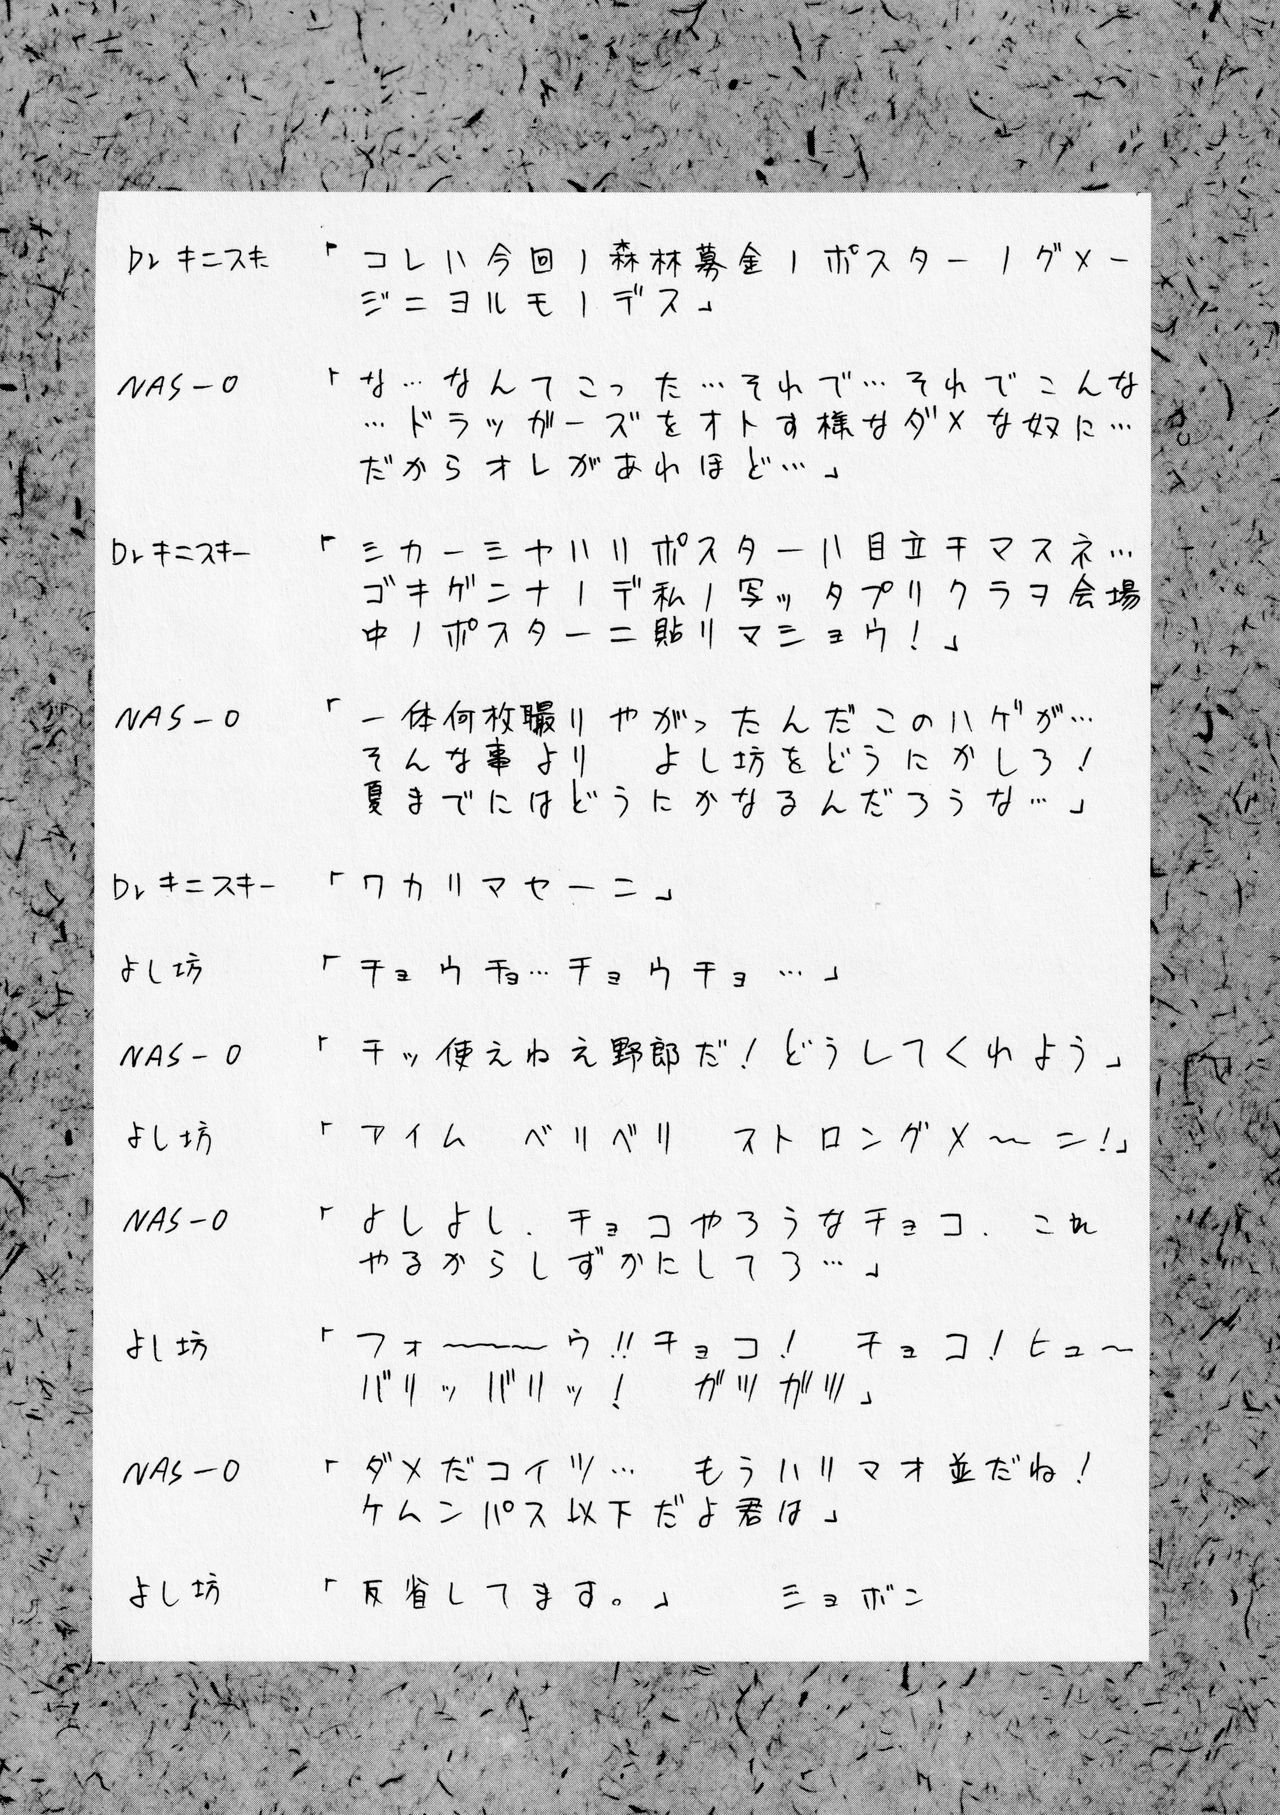 Dr キニスキ 「コレハ今回ノ森林募金ノポスターノダメー
ジニヨルモノデス」
NAS-O 「な…なんてこった…それで…それでこんな
…ドラッガーズをオトす様なダメな奴に…
だからオレがあれほど…」
Dr キニスキー 「シカーシヤハリポスターハ目立チマスネ…
ゴキゲンナノデ私ノ写ッタプリクラヲ会場
中ノポスターニ貼リマショウ!」
NAS-O 「一体何枚撮りやがったんだこのハゲが…
そんな事より よし坊をどうにかしろ!
夏までにはどうにかなるんだろうな…」
Dr キニスキー 「ワカリマセーン」
よし坊 「チョウチョ…チョウチョ…」
NAS-O 「チッ使えねえ野郎だ!どうしてくれよう」
よし坊 「アイム ベリベリ ストロングメ〜ン!」
NAS-O 「よしよし、チョコやろうなチョコ、これ
やるからしずかにしてろ…」
よし坊 「フォ〜〜〜ウ!!チョコ! チョコ!ヒュ〜
バリッバリッ! ガツガツ」
NAS-O 「ダメだコイツ… もうハリマオ並だね!
ケムンパス以下だよ君は」
よし坊 「反省してます。」 ショボン